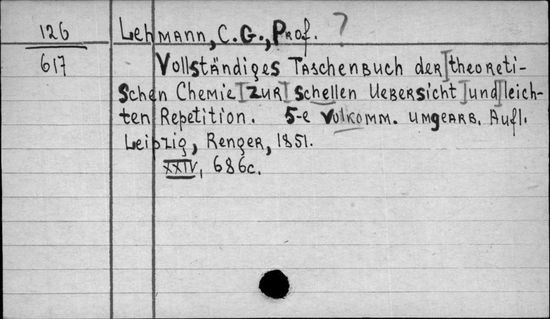 126 Lehmann, C.G., Prof. ?
617 Vollständiges Taschenbuch der theoreti-
schen Chemie zur schellen Uebersicht und leich-
ten Repetition. 5-e Volkomm. umgearb. Aufl.
Leipzig, Renger, 1851.
XXIV, 686c.